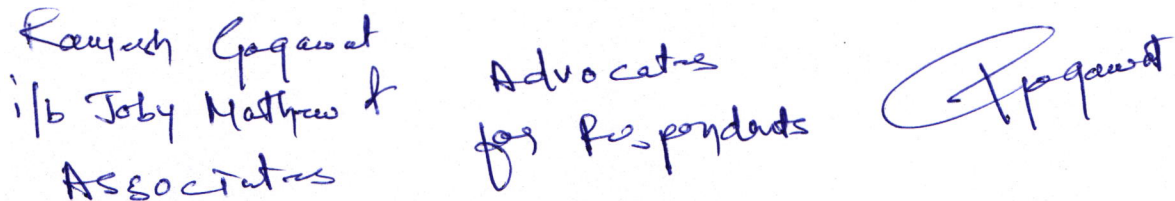 Ramesh Gogawat
i/b Joby Mathew &
Associates
Advocates
for Respondents
Gogawat